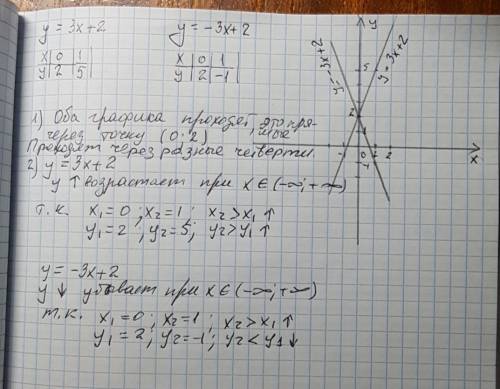 y = 3x+2    y = -3x+2
x | 0 | 1 |    x | 0 | 1 |
y | 2 | 5 |    y | 2 | -1 |
1) Оба графика проходят, это пря-
через точку (0; 2) мые
Проходят через разные четверти.
2) y = 3x+2
y ↑ возрастает при x ∈ (-∞; +∞)
т.к. x₁=0 ; x₂=1 ; x₂>x₁ ↑
y₁=2 ; y₂=5; y₂>y₁ ↑
y = -3x+2
y ↓ убывает при x ∈ (-∞; +∞)
т.к. x₁=0 ; x₂=1 ; x₂>x₁ ↑
y₁=2; y₂=-1; y₂<y₁ ↓
y
y=-3x+2
y=3x+2
5
2
1
-1 0 1 2
-1
x